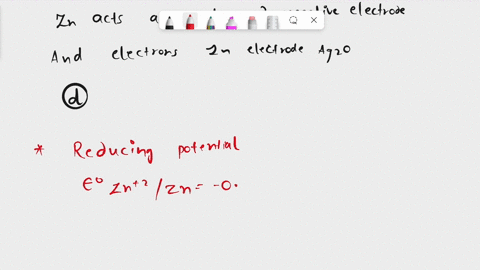 Zn acts a electrode
And electrons Zn electrode Ag2O
d
* Reducing potential
E⁰ Zn⁺²/Zn = -0.